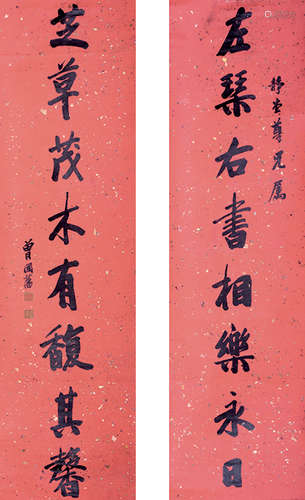 左琴右書相樂永日
靜出尊兄屬
芝草茂木有馥其馨
曾國藩